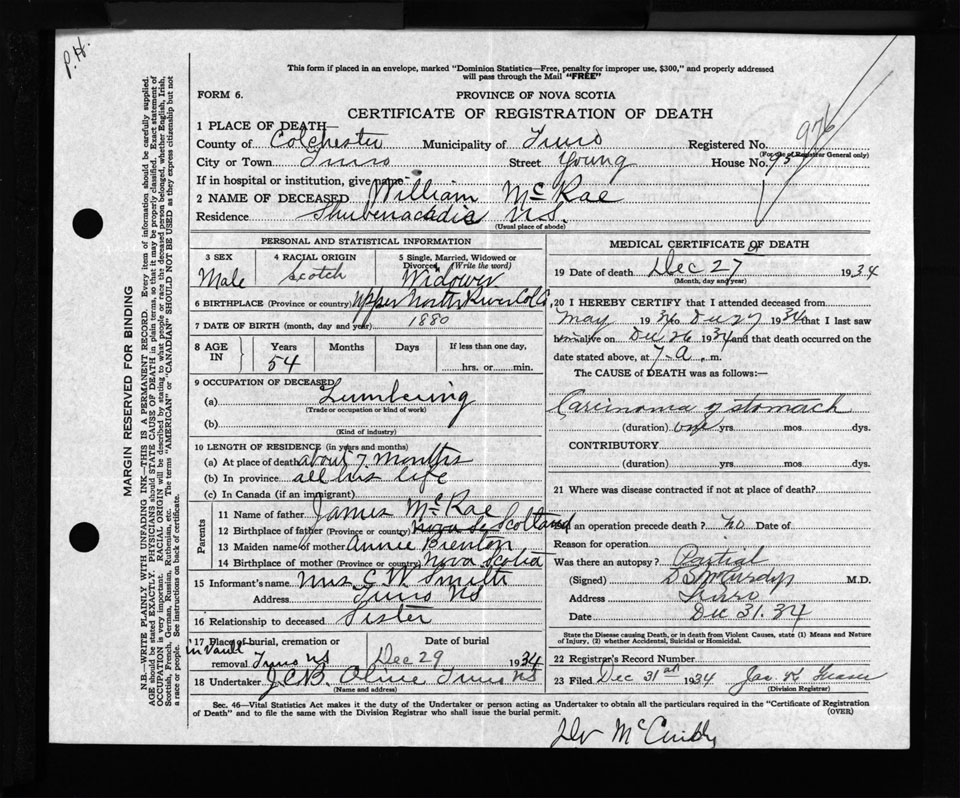 P.H.
This form if placed in an envelope, marked "Dominion Statistics—Free, penalty for improper use, $300," and properly addressed
will pass through the Mail "FREE"
FORM 6.
PROVINCE OF NOVA SCOTIA
CERTIFICATE OF REGISTRATION OF DEATH
976
1 PLACE OF DEATH
County of Colchester Municipality of Truro Registered No.
(For use of Registrar General only)
City or Town Truro Street Young House No.
If in hospital or institution, give name
2 NAME OF DECEASED William McRae
Residence Shubenacadie N.S.
(Usual place of abode)
PERSONAL AND STATISTICAL INFORMATION
3 SEX 4 RACIAL ORIGIN 5 Single, Married, Widowed or
Divorced (Write the word)
Male Scotch Widower
6 BIRTHPLACE (Province or country) Upper North River Col Co
7 DATE OF BIRTH (month, day and year) 1880
8 AGE IN Years Months Days If less than one day,
54 hrs. or min.
9 OCCUPATION OF DECEASED
(a) Lumbering
(Trade or occupation or kind of work)
(b)
(Kind of industry)
10 LENGTH OF RESIDENCE (in years and months)
(a) At place of death about 7 months
(b) In province all his life
(c) In Canada (if an immigrant)
Parents
11 Name of father James McRae
12 Birthplace of father (Province or country) Nova Sc Scotland
13 Maiden name of mother Annie Brenton
14 Birthplace of mother (Province or country) Nova Scotia
15 Informant's name Mrs C W Smith
Address Truro NS
16 Relationship to deceased Sister
17 Place of burial, cremation or Date of burial
in Vault
removal Truro NS Dec 29 1934
18 Undertaker J.C.B. Olive Truro NS
(Name and address)
MEDICAL CERTIFICATE OF DEATH
19 Date of death Dec 27 1934
(Month, day and year)
20 I HEREBY CERTIFY that I attended deceased from
May 1934 to Dec 27 1934 that I last saw
him alive on Dec 26 1934 and that death occurred on the
date stated above, at 7 a. m.
The CAUSE of DEATH was as follows:—
Carcinoma of stomach
(duration) one yrs. mos. dys.
CONTRIBUTORY
(duration) yrs. mos. dys.
21 Where was disease contracted if not at place of death?
an operation precede death? no Date of
Reason for operation
Was there an autopsy? Partial
(Signed) McCurdy M.D.
Address Truro
Date Dec 31. 34
State the Disease causing Death, or in death from Violent Causes, state (1) Means and Nature
of Injury, (2) whether Accidental, Suicidal or Homicidal.
22 Registrar's Record Number
23 Filed Dec 31st 1934 Jas K Fraser
(Division Registrar)
Sec. 46—Vital Statistics Act makes it duty of the Undertaker or person acting as Undertaker to obtain all the particulars required in the "Certificate of Registration
of Death" and to file the same with the Division Registrar who shall issue the burial permit.
(OVER)
Dr McCurdy
MARGIN RESERVED FOR BINDING
N.B.—WRITE PLAINLY WITH UNFADING INK—THIS IS A PERMANENT RECORD. Every item of information should be carefully supplied.
AGE should be stated EXACTLY. PHYSICIANS should STATE CAUSE OF DEATH in plain terms, so that it may be properly classified. Exact statement of
OCCUPATION is very important. RACIAL ORIGIN will be described by stating to what people or race the deceased person belonged, whether English, Irish,
Scottish, French, German, Russian, Ruthenian, etc. The terms "AMERICAN" or "CANADIAN" SHOULD NOT BE USED as they express citizenship but not
a race or people. See instructions on back of certificate.